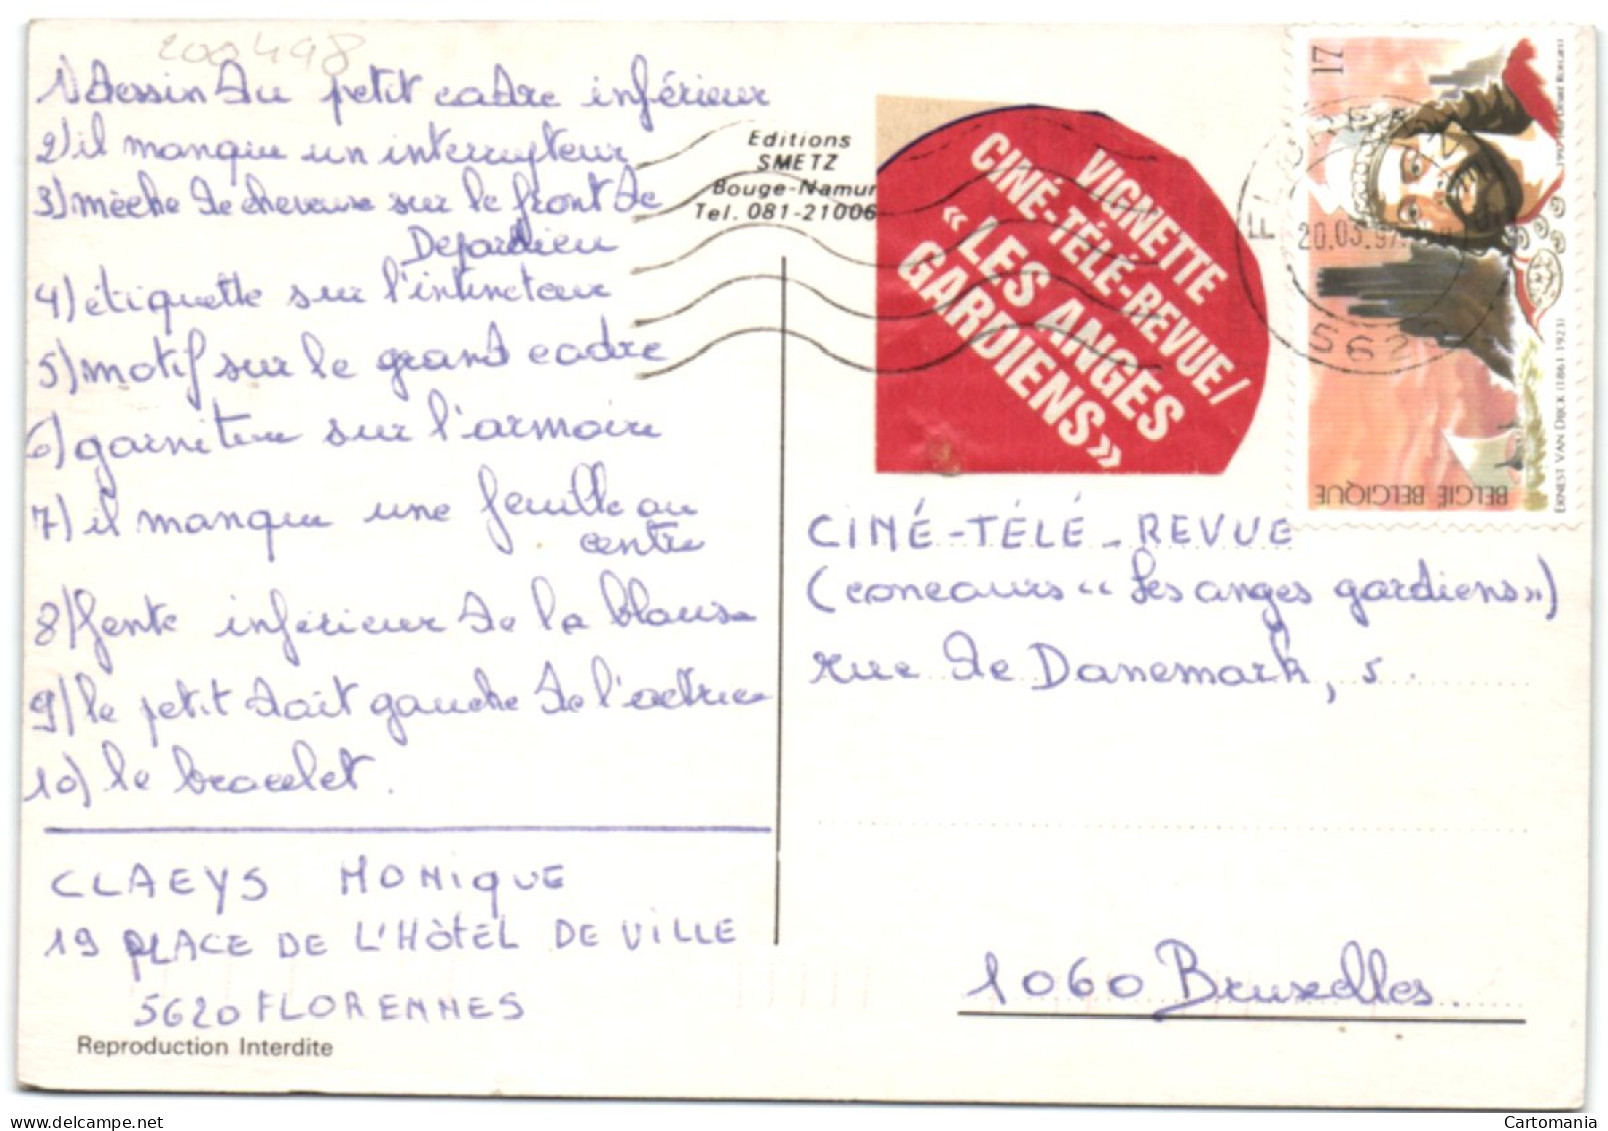 200498
1) dessin du petit cadre inférieur
2) il manque un interrupteur
3) mèche de cheveux sur le front de
Depardieu
4) étiquette sur l'extincteur
5) motif sur le grand cadre
6) garniture sur l'armoire
7) il manque une feuille au
centre
8) fente inférieur de la blouse
9) le petit doit gauche de l'actrice
10) le bracelet.
CLAEYS MONIQUE
19 PLACE DE L'HÔTEL DE VILLE
5620 FLORENNES
Reproduction Interdite
Editions
SMETZ
Bouge-Namur
Tel. 081-21006
VIGNETTE
CINÉ-TÉLÉ-REVUE/
«LES ANGES
GARDIENS»
17
BELGIË BELGIQUE
ERNEST VAN DIJCK (1861-1923)
20.03.97
CINÉ-TÉLÉ-REVUE
(concours "Les anges gardiens")
rue de Danemark, 5
1060 Bruxelles
Cartomania